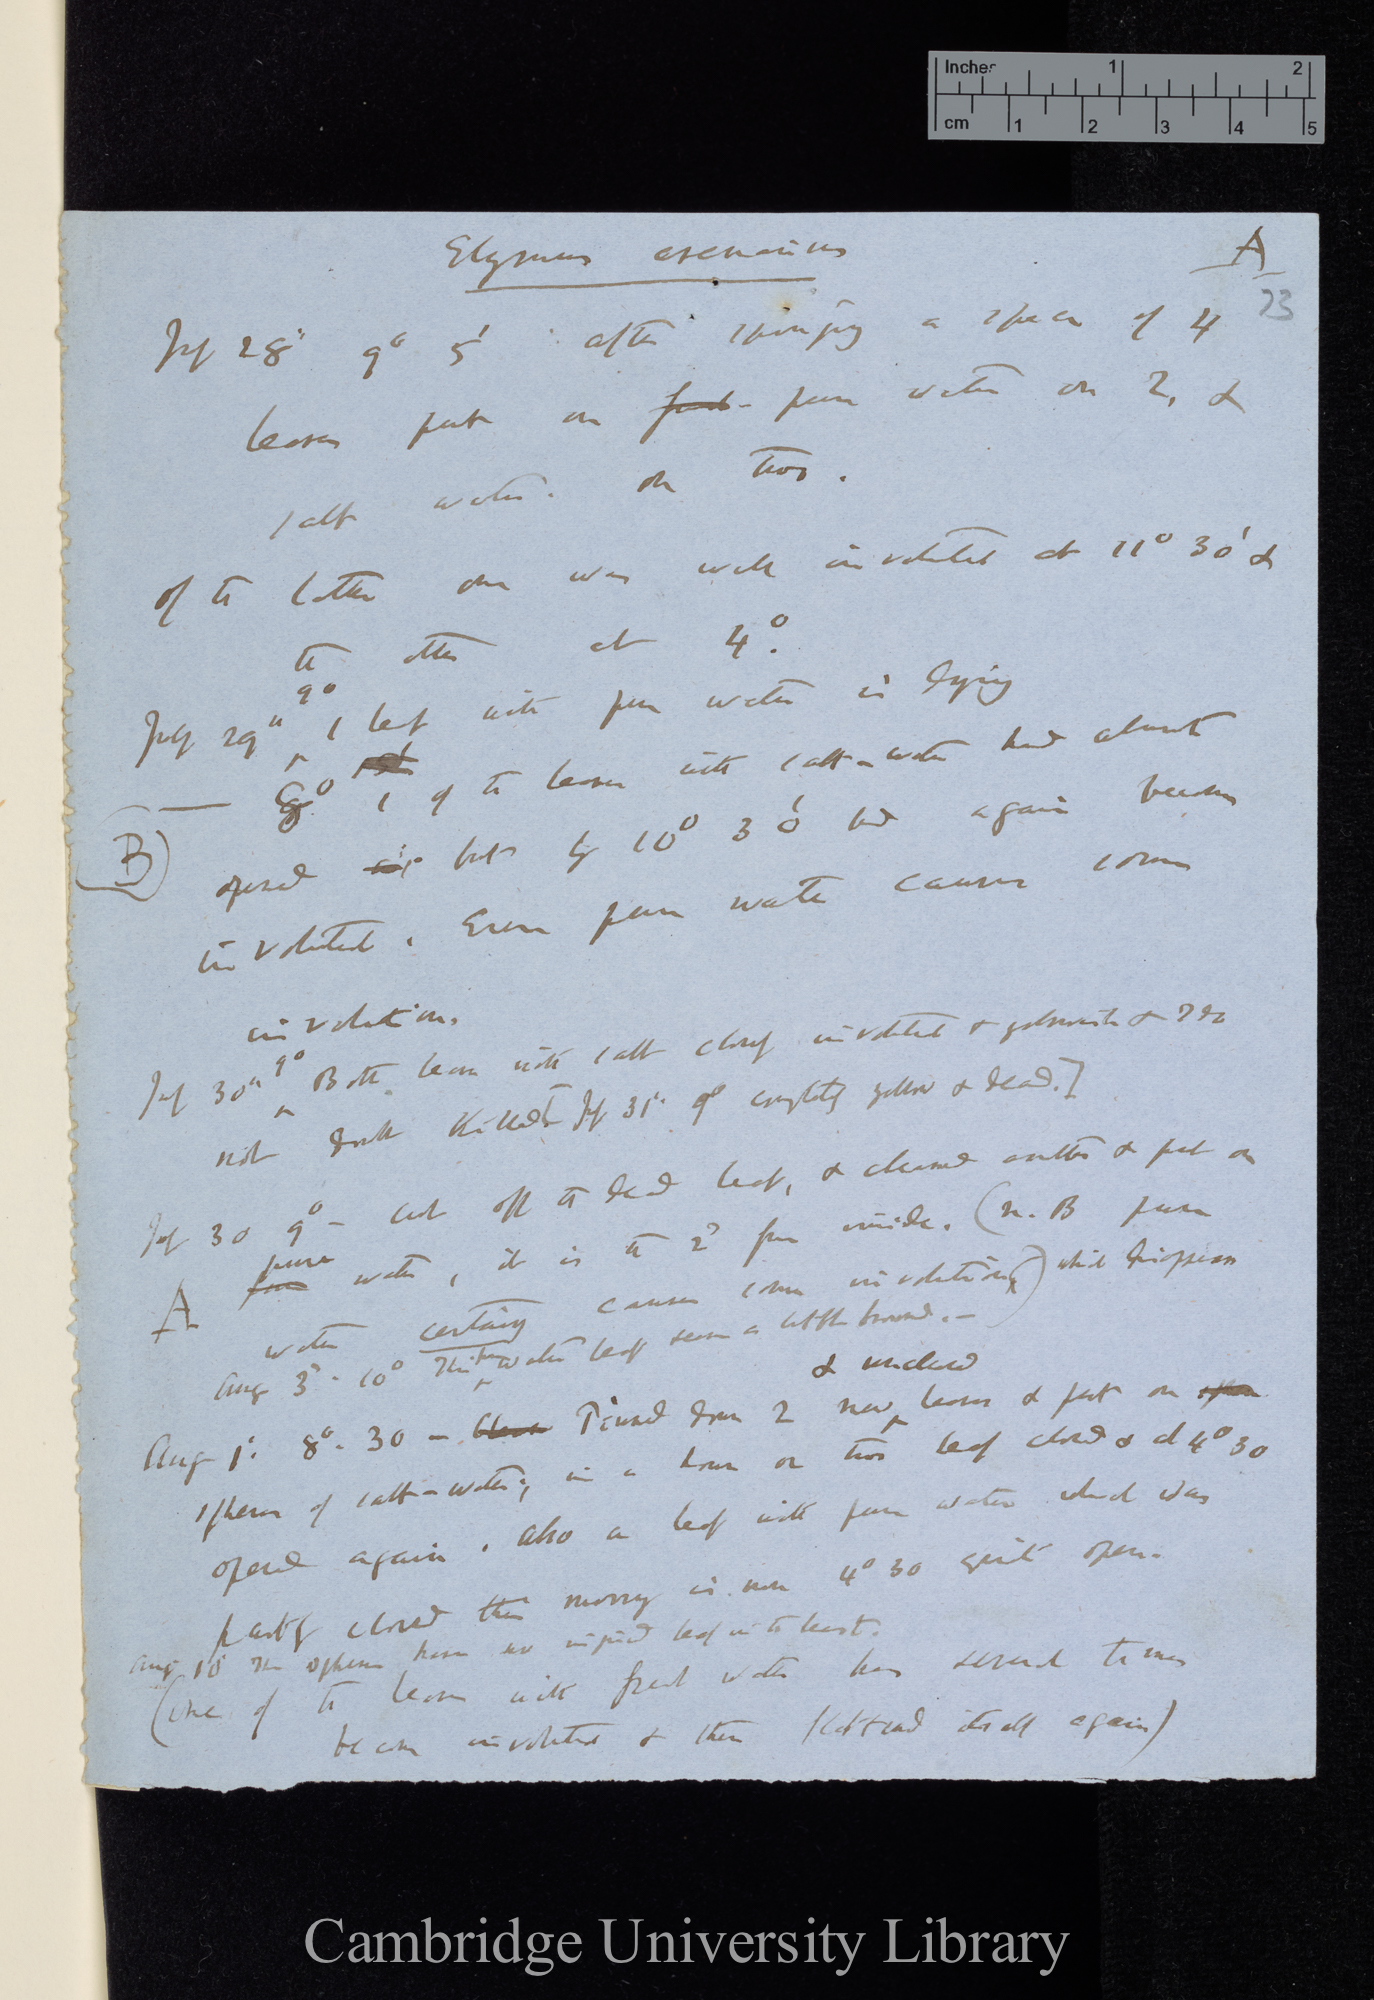 Inches 1 2
cm 1 2 3 4 5
Elymus arenarius
A
23
July 28' 9° 5' after sponging a space of 4
leaves put on pure water on 2, &
salt water on two.
of the latter one was well involuted at 11° 30' &
the other at 4°.
July 29" 9° 1 leaf with pure water is dying
— 8° 1 of the leaves with salt-water had almost
B
opened but by 10° 30' had again become
involuted. Even pure water causes some
involution.
July 30" 9° Both leaves with salt closely involuted & yellowish &
not quite killed [July 31st 9° completely yellow & dead.]
July 30 9° — cut off the dead leaf, & cleaned another & put on
A
pure water, it is the 2d from inside. (N.B pure
water certainly causes some involution) which disappears
Aug 3d. 10° This pure water leaf seems a little browned.—
& uncleaned
Aug 1st. 8°. 30 — Pinned down 2 new leaves & put on
spheres of salt-water; in a hour or two leaf closed & at 4° 30
opened again. Also a leaf with pure water which was
partly closed this morning is now 4° 30 quite open.
Aug 10 The spheres have not injured leaf in the least.
(One of the leaves with fresh water has several times
become involuted & then flattened itself again)
Cambridge University Library